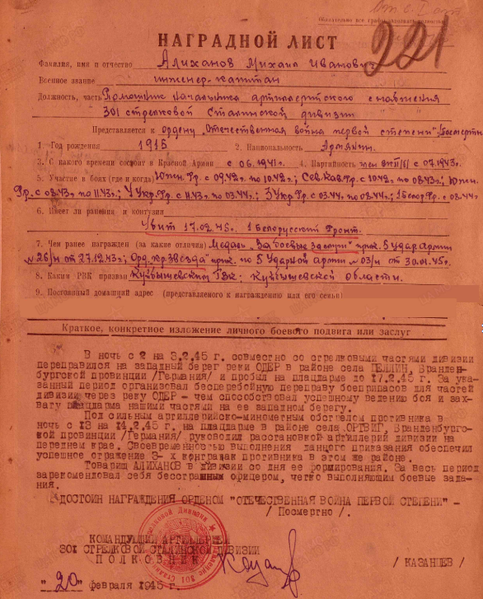 221
НАГРАДНОЙ ЛИСТ
Фамилия, имя и отчество Алиханов Михаил Иванович
Военное звание инженер-капитан
Должность, часть Помощник начальника артиллерийского снабжения
301 стрелковой Сталинской дивизии
Представляется к ордену „Отечественная война первой степени"/Посмертно/
1. Год рождения 1916 2. Национальность Армянин
3. С какого времени состоит в Красной Армии с 06.1941г. 4. Партийность член ВКП/б/ с 07.1943г.
5. Участие в боях (где и когда) Южн. Фр. с 09.42 по 10.42; Сев.Кав.Фр. с 10.42 по 08.43г; Южн.
Фр. с 08.43г по 11.43г; 4 Укр.Фр. с 11.43 по 03.44г; 3 Укр.Фр. с 03.44 по 08.44г; 1 Бел.Фр. с 08.44г
6. Имеет ли ранения и контузии
Убит 17.02.45г. 1 Белорусский Фронт.
7. Чем ранее награжден (за какие отличия) Медаль „За боевые заслуги" прик. 5 Удар Армии
№ 26/н от 27.12.43г; Орд. „Кр. Звезда" прик. по 5 Ударной Армии №03/н от 30.01.45г.
8. Каким РВК призван Куйбышевским ГВК; Куйбышевской области.
9. Постоянный домашний адрес (представляемого к награждению или его семьи)
Краткое, конкретное изложение личного боевого подвига или заслуг
В ночь с 2 на 3.2.45 г. совместно со стрелковыми частями дивизии
переправился на западный берег реки ОДЕР в районе села ТЕЛЛИН, Бранден-
бургской провинции /Германия/ и пробыл на плацдарме до 17.2.45 г. За ука-
занный период организовал бесперебойную переправу боеприпасов для частей
дивизии через реку ОДЕР - чем способствовал успешному ведению боя и зах-
вату плацдарма нашими частями на ее западном берегу.
Под сильным артиллерийско-минометным обстрелом противника в
ночь с 13 на 14.2.45 г. на плацдарме в районе села ОРТВИГ, Бранденбург-
ской провинции /Германия/ руководил расстановкой артиллерий дивизии на
переднем крае. Своевременностью выполнения данного приказания обеспечил
успешное отражение 3-х контратак противника в этом же районе.
Товарищ АЛИХАНОВ в дивизии со дня ее формирования. За весь период
зарекомендовал себя бесстрашным офицером, четко выполняющим боевые зада-
ния.
ДОСТОИН НАГРАЖДЕНИЯ ОРДЕНОМ "ОТЕЧЕСТВЕННАЯ ВОЙНА ПЕРВОЙ СТЕПЕНИ" -
/Посмертно/.
КОМАНДУЮЩИЙ АРТИЛЛЕРИЕЙ
301 СТРЕЛКОВОЙ СТАЛИНСКОЙ ДИВИЗИИ
ПОЛКОВНИК / КАЗАНЦЕВ /
"20" февраля 1945 г.